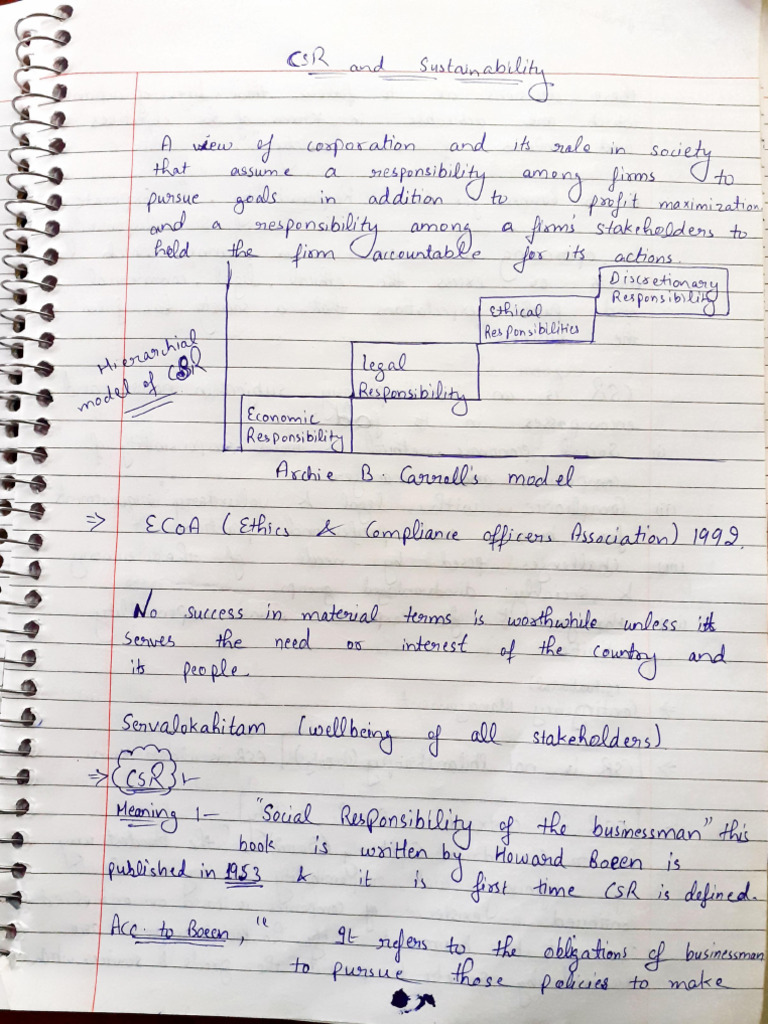 CSR and Sustainability
A view of corporation and its role in society
that assume a responsibility among firms to
pursue goals in addition to profit maximization
and a responsibility among a firm's stakeholders to
hold the firm accountable for its actions.
Discretionary
Responsibility
Ethical
Responsibilities
Hierarchial
model of CSR
Legal
Responsibility
Economic
Responsibility
Archie B. Carroll's model
⇒ ECOA (Ethics & Compliance officers Association) 1992.
No success in material terms is worthwhile unless it
serves the need or interest of the country and
its people.
Servalokahitam (wellbeing of all stakeholders)
⇒ CSR :-
Meaning :- "Social Responsibility of the businessman" this
book is written by Howard Boeen is
published in 1953 & it is first time CSR is defined.
Acc. to Boeen, " It refers to the obligations of businessman
to pursue those policies to make